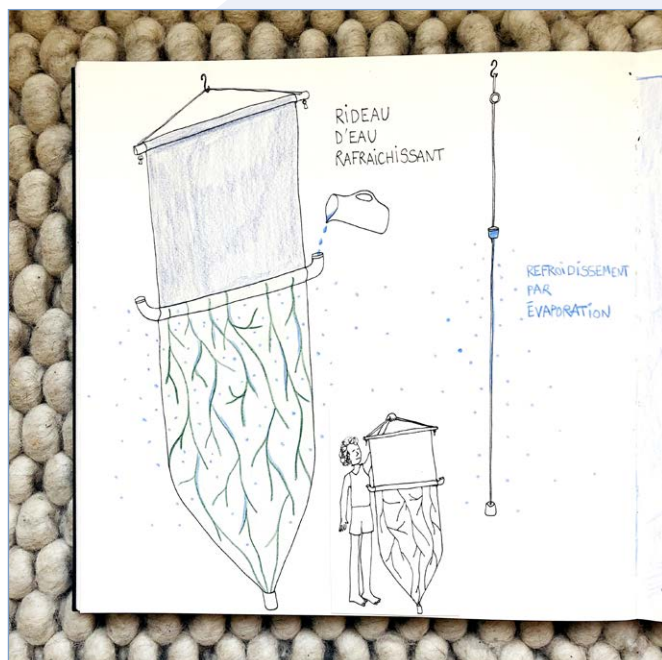 RIDEAU
D'EAU
RAFRAICHISSANT
REFROIDISSEMENT
PAR
ÉVAPORATION